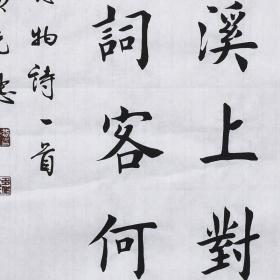 溪上對
詞客何
物詩一首